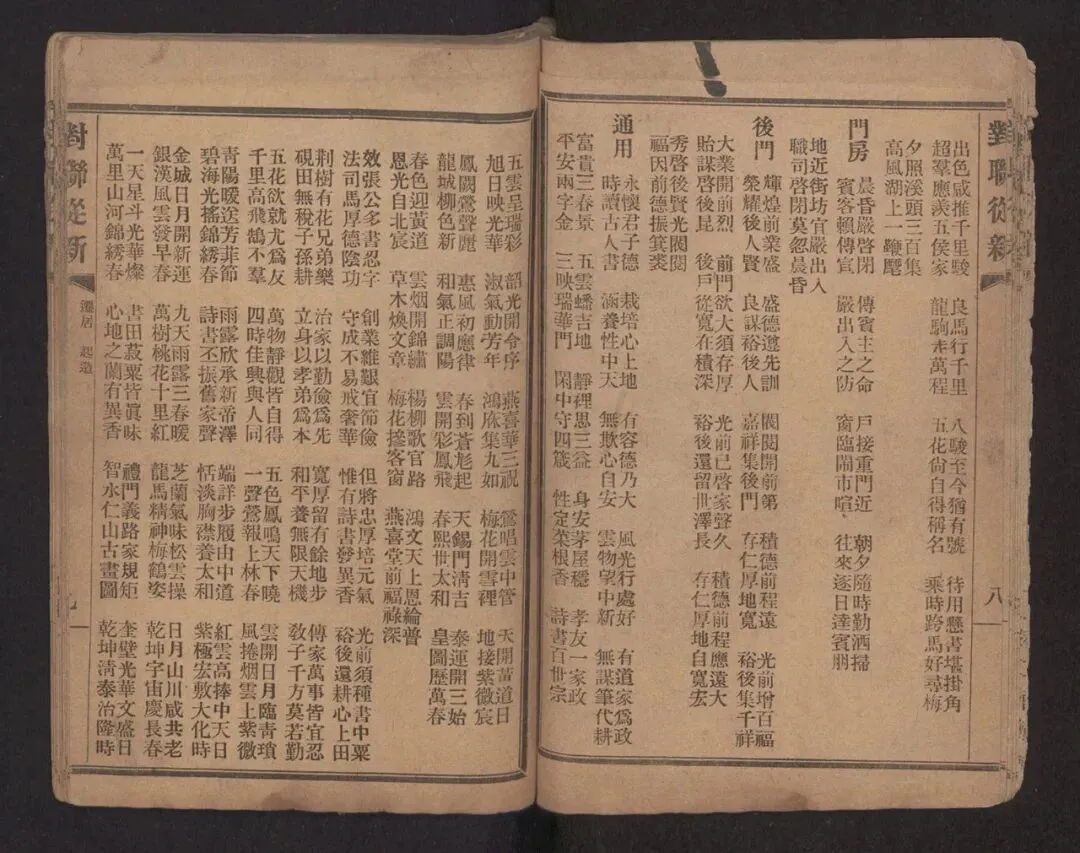 對聯從新 八
出色咸推千里駿 良馬行千里 八駿至今猶有號 待用懸書堪掛角
超羣應羨五侯家 龍駒志萬程 五花尙自得稱名 乘時跨馬好尋梅
夕照溪頭三百集
高風湖上一鞭麾
門房 晨昏嚴啓閉 傳賓主之命 戶接重門近 朝夕隨時勤洒掃
賓客賴傳宣 嚴出入之防 窗臨鬧市喧 往來逐日達賓朋
地近街坊宜嚴出入
職司啓閉莫忽晨昏
後門 輝煌前業盛 盛德遵先訓 閥閱開前第 積德前程遠 光前增百福
榮耀後人賢 良謀裕後人 嘉祥集後門 存仁厚地寬 裕後集千祥
大業開前烈 前門欲大須存厚 光前已啓家聲久 積德前程應遠大
貽謀啓後昆 後戶從寬在積深 裕後還留世澤長 存仁厚地自寬宏
秀啓後賢光閥閱
福因前德振箕裘
通用 永懷君子德 栽培心上地 有容德乃大 風光行處好 有道家爲政
時讀古人書 涵養性中天 無欺心自安 雲物望中新 無謀筆代耕
富貴三春景 五雲蟠吉地 靜裡思三益 身安茅屋穩 孝友一家政
平安兩字金 三映瑞華門 閑中守四箴 性定菜根香 詩書百世宗
五雲呈瑞彩 韶光開令序 燕喜華三祝 鶯唱雲中管 天開黃道日
旭日映光華 淑氣動芳年 鴻庥集九如 梅花開雪裡 地接紫微宸
鳳闕鶯聲囀 惠風初應律 春到蒼彪起 天錫門淸吉 泰運開三始
龍城柳色新 和氣正調陽 雲開彩鳳飛 春熙世太和 皇圖歷萬春
春色迎黃道 雲烟開錦繡 楊柳歌官路 鴻文天上恩綸普
恩光自北宸 草木煥文章 梅花摻客窗 燕喜堂前福祿深
效張公多書忍字 創業維艱宜節儉 但將忠厚培元氣 光前須種書中粟
法司馬厚德陰功 守成不易戒奢華 惟有詩書發異香 裕後還耕心上田
荆樹有花兄弟樂 治家以勤儉爲先 寬厚留有餘地步 傳家萬事皆宜忍
硯田無稅子孫耕 立身以孝弟爲本 和平養無限天機 敎子千方莫若勤
五花欲就尤爲友 萬物靜觀皆自得 五色鳳鳴天下曉 雲開日月臨靑瑣
千里高飛鵠不羣 四時佳興與人同 一聲鶯報上林春 風捲烟雲上紫微
靑陽暖送芳菲節 雨露欣承新帝澤 端詳步履由中道 紅雲高捧中天日
碧海光搖錦綉春 詩書丕振舊家聲 恬淡胸襟養太和 紫極宏敷大化時
金城日月開新運 九天雨露三春暖 芝蘭氣味松雲操 日月山川咸共老
銀漢風雲發早春 萬樹桃花十里紅 龍馬精神梅鶴姿 乾坤宇宙慶長春
一天星斗光華燦 書田菽粟皆眞味 禮門義路家規矩 奎璧光華文盛日
萬里山河錦綉春 心地之蘭有異香 智水仁山古畫圖 乾坤淸泰治隆時
對聯從新 遷居 起造 九